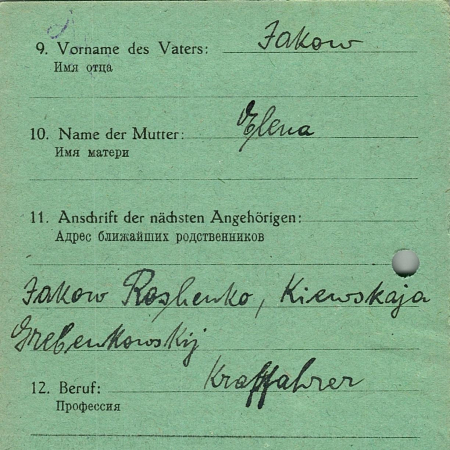 9. Vorname des Vaters: Jakow
Имя отца
10. Name der Mutter: Elena
Имя матери
11. Anschrift der nächsten Angehörigen:
Адрес ближайших родственников
Jakow Roshenko, Kiewskaja
Grebenkowskij
12. Beruf: Kraftfahrer
Профессия